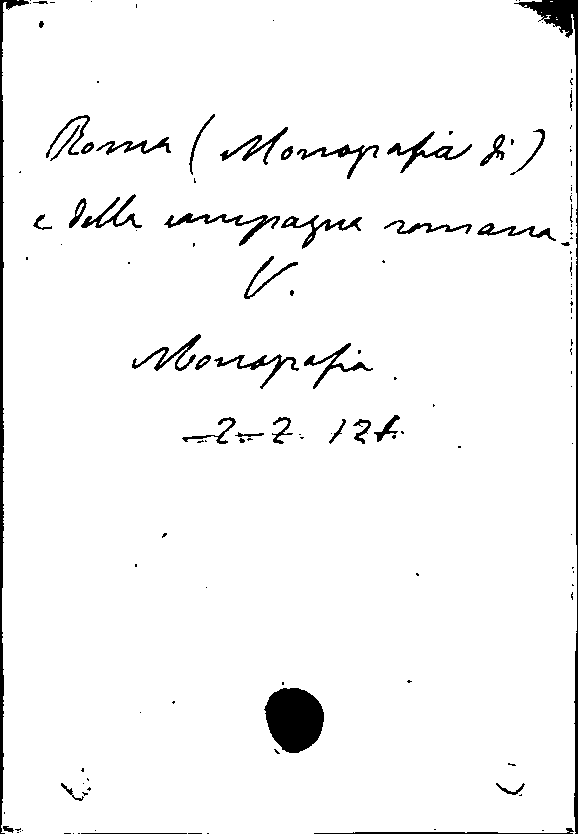 Roma (Monografia di)
e della campagna romana.
V.
Monografia.